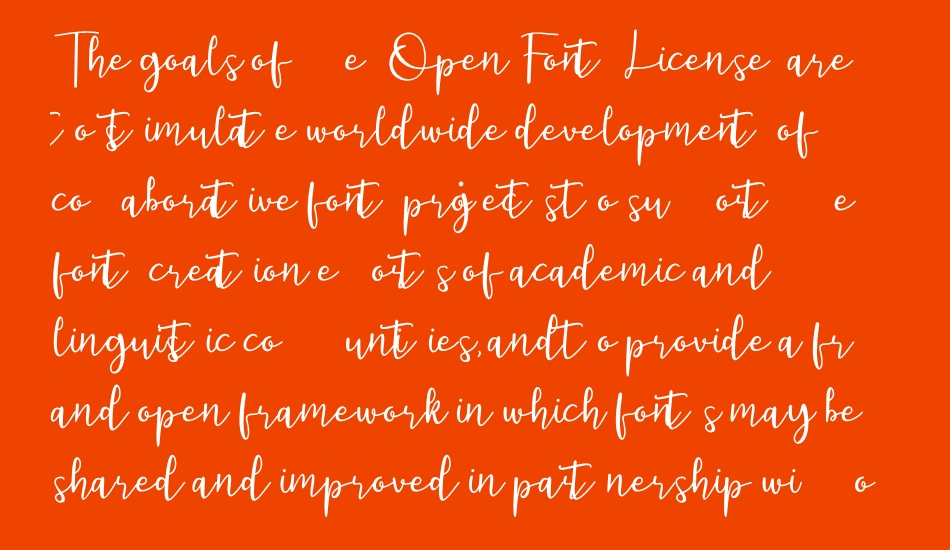 The goals of e Open Font License are
to stimulate worldwide development of
co aborative font projects to su ort e
font creation e orts of academic and
linguistic co unities, and to provide a fr
and open framework in which fonts may be
shared and improved in partnership wi o